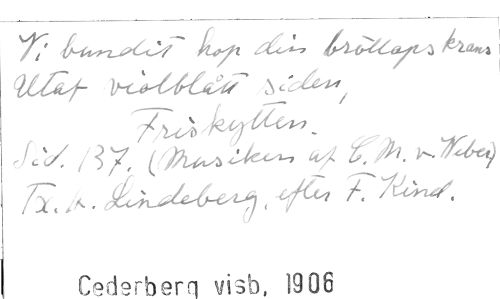 Vi bundit hop din bröllops krans
Utaf violblått siden,
Friskytten.
Sid. 137. (Musiken af C. M. v. Weber)
Tx. A. Lindeberg, efter F. Kind.
Cederberg visb, 1906